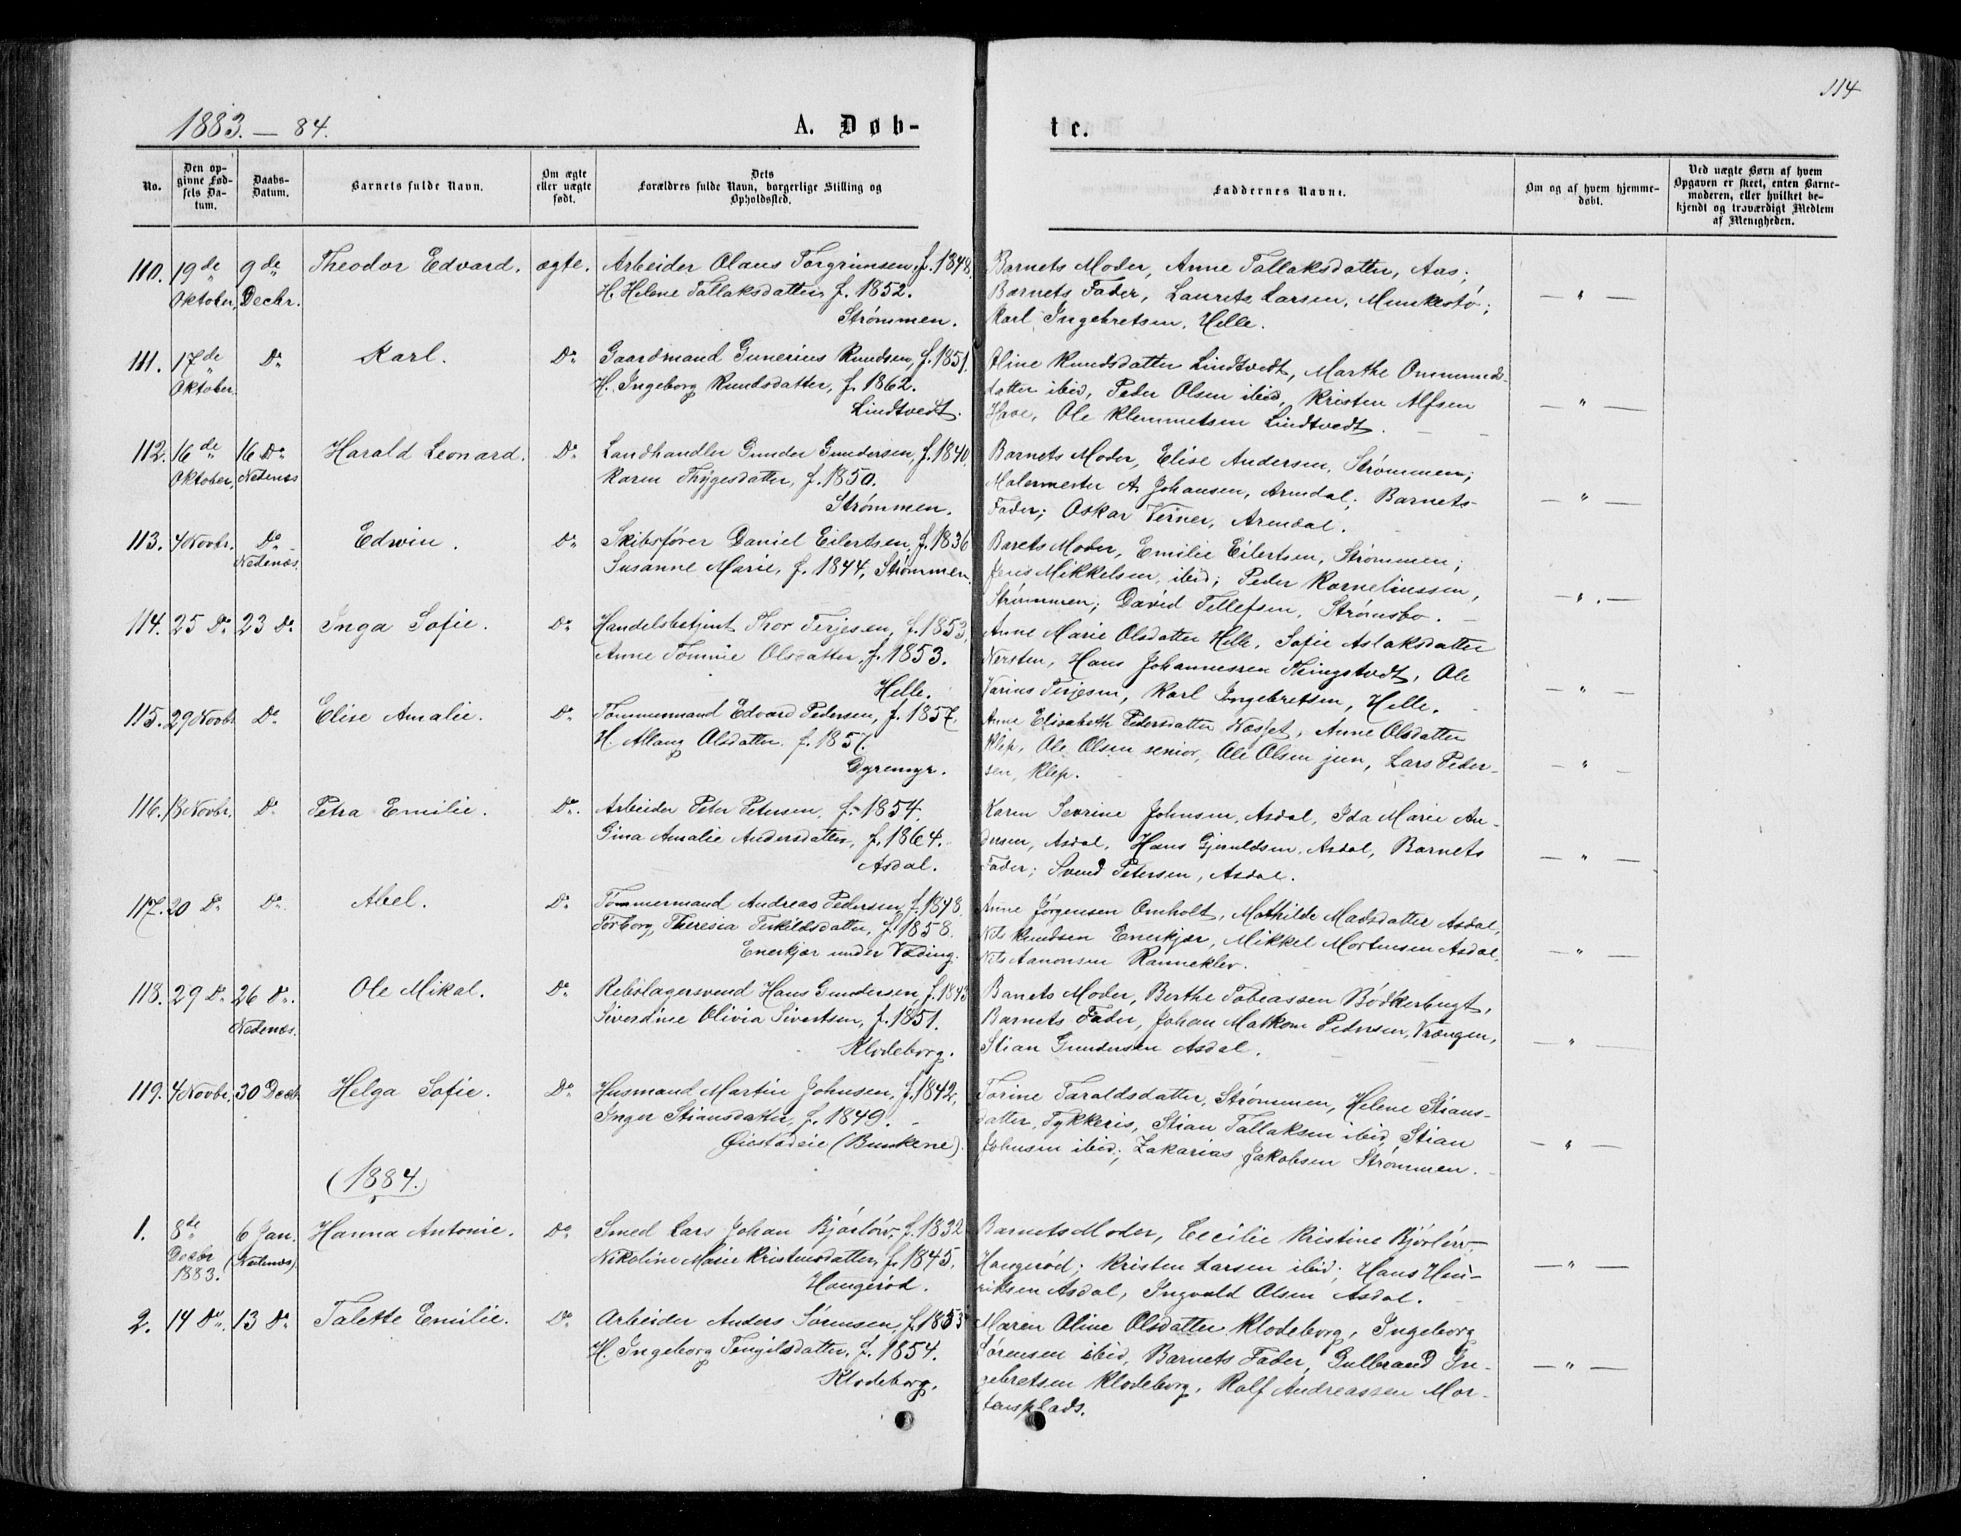 114
1883. — 84.
A. Døb-
te.
No.
Den opgivne Fødsels Datum.
Daabs-Datum.
Barnets fulde Navn.
Om ægte eller uægte født.
Dets Forældres fulde Navn, borgerlige Stilling og Opholdssted.
Faddernes Navne.
Om og af hvem hjemmedøbt.
Ved uægte Børn af hvem Opgaven er skeet, enten Barnemoderen, eller hvilket bekjendt og troværdigt Medlem af Menigheden.
110. 19de Oktober, 9de Decbr. Theodor Edvard. ægte. Arbeider Olaus Torgrimsen, f. 1848,
H. Helene Tallaksdatter, f. 1852.
Strømmen.
Barnets Moder, Anne Tallaksdatter, Aas;
Barnets Fader, Laurets Larsen, Munkestø;
Karl Ingebretsen, Helle.
— " —
111. 17de Oktober Do Karl. Do Gaardmand Gunerius Knudsen, f. 1851.
H. Ingeborg Knudsdatter, f. 1862.
Lindtvedt.
Oline Knudsdatter Lindtvedt, Marthe Ommunds-
datter ibid, Peder Olsen ibid, Kristen Alfsen
Have, Ole Klemmetsen Lindtvedt.
— " —
112. 16de Oktober, 16 Do Nedenæs Harald Leonard. Do Landhandler Gunder Gundersen, f. 1840,
Karen Thygesdatter, f. 1850.
Strømmen.
Barnets Moder, Elise Andersen, Strømmen;
Malermester A. Johansen, Arendal; Barnets
Fader; Oskar Verner, Arendal.
— " —
113. 4 Novbr. Do Nedenæs. Edwin. Do Skibsfører Daniel Eilertsen, f. 1836
Susanne Marie, f. 1844, Strømmen.
Barets Moder, Emilie Eilertsen, Strømmen;
Jens Mikkelsen, ibid; Peder Korneliussen,
Strømmen; David Tellefsen, Strømsbo.
— " —
114. 25 Do 23 Do Inga Sofie. Do Handelsbetjent Thor Terjesen, f. 1853,
Anne Tomine Olsdatter, f. 1853.
Helle.
Anne Marie Olsdatter Helle, Sofie Aslaksdatter
Nersten, Hans Johannessen Thingstvedt, Ole
Varius Terjesen, Karl Ingebretsen, Helle.
— " —
115. 29 Novbr Do Elise Amalie. Do Tømmermand Edvard Pedersen, f. 1857,
H. Allang Olsdatter f. 1857.
Dyremyr.
Anne Elisabeth Pedersdatter Næsset, Anne Olsdatter
Klep, Ole Olsen senior, Ole Olsen jun, Lars Peder-
sen, Klep.
— " —
116. 13 Novbr. Do Petra Emilie. Do. Arbeider Peter Petersen, f. 1854.
Gina Amalie Andersdatter, f. 1864.
Asdal.
Karen Sevrine Johnsen, Asdal, Ida Marie An-
dersen, Asdal, Hans Gjeruldsen, Asdal, Barnets
Fader; Svend Petersen, Asdal.
— " —
117. 20 Do Do. Abel. Do Tømmermand Andreas Pedersen f. 1848.
Torborg Theresia Terkildsdatter, f. 1858.
Enerkjær under Væding.
Anne Jørgensen Omholt, Mathilde Madsdatter Asdal,
Nils Knudsen Enerkjær, Mikkel Mortensen Asdal,
Nils Aanonsen Ranneklev.
— " —
118. 29 Do 26 Do. Nedenæs. Ole Mikal. Do Rebslagersvend Hans Gundersen, f. 1843
Siverdine Olivia Sivertsen, f. 1851.
Klodeborg.
Banets Moder, Berthe Tobiassen Bødkerbugt,
Barnets Fader, Johan Malkom Pedersen, Vrængen,
Stian Gundersen Asdal.
— " —
119. 4 Novbr, 30 Decbr Helga Sofie. Do Husmand Martin Johnsen, f. 1842,
Inger Stiansdatter, f. 1849.
Øiestadeie (Bunkene).
Torine Taraldsdatter, Strømmen, Helene Stians-
datter, Tykkeris, Stian Tallaksen ibid, Stian
Johnsen ibid; Zakarias Jakobsen Strømmen.
— " —
(1884.)
1. 8de Decbr 1883. 6 Jan. (Nedenæs) Hanna Antonie. Do Smed Lars Johan Bjørløv, f. 1832
Nikoline Marie Kristensdatter, f. 1845,
Haugerød.
Barnets Moder, Cecilie Kristine Bjørløv
Haugerød; Kristen Larsen ibid; Hans Hen-
riksen Asdal, Ingvald Olsen Asdal.
— " —
2. 14 Do. 13 Do Talette Emilie. Do Arbeider Anders Sørensen, f. 1853
H. Ingeborg Tengilsdatter, f. 1854.
Klodeborg.
Maren Oline Olsdatter Klodeborg, Ingeborg
Sørensen ibid, Barnets Fader, Gulbrand In-
gebretsen Klodeborg, Rolf Andreassen Mor-
tensplads.
— " —